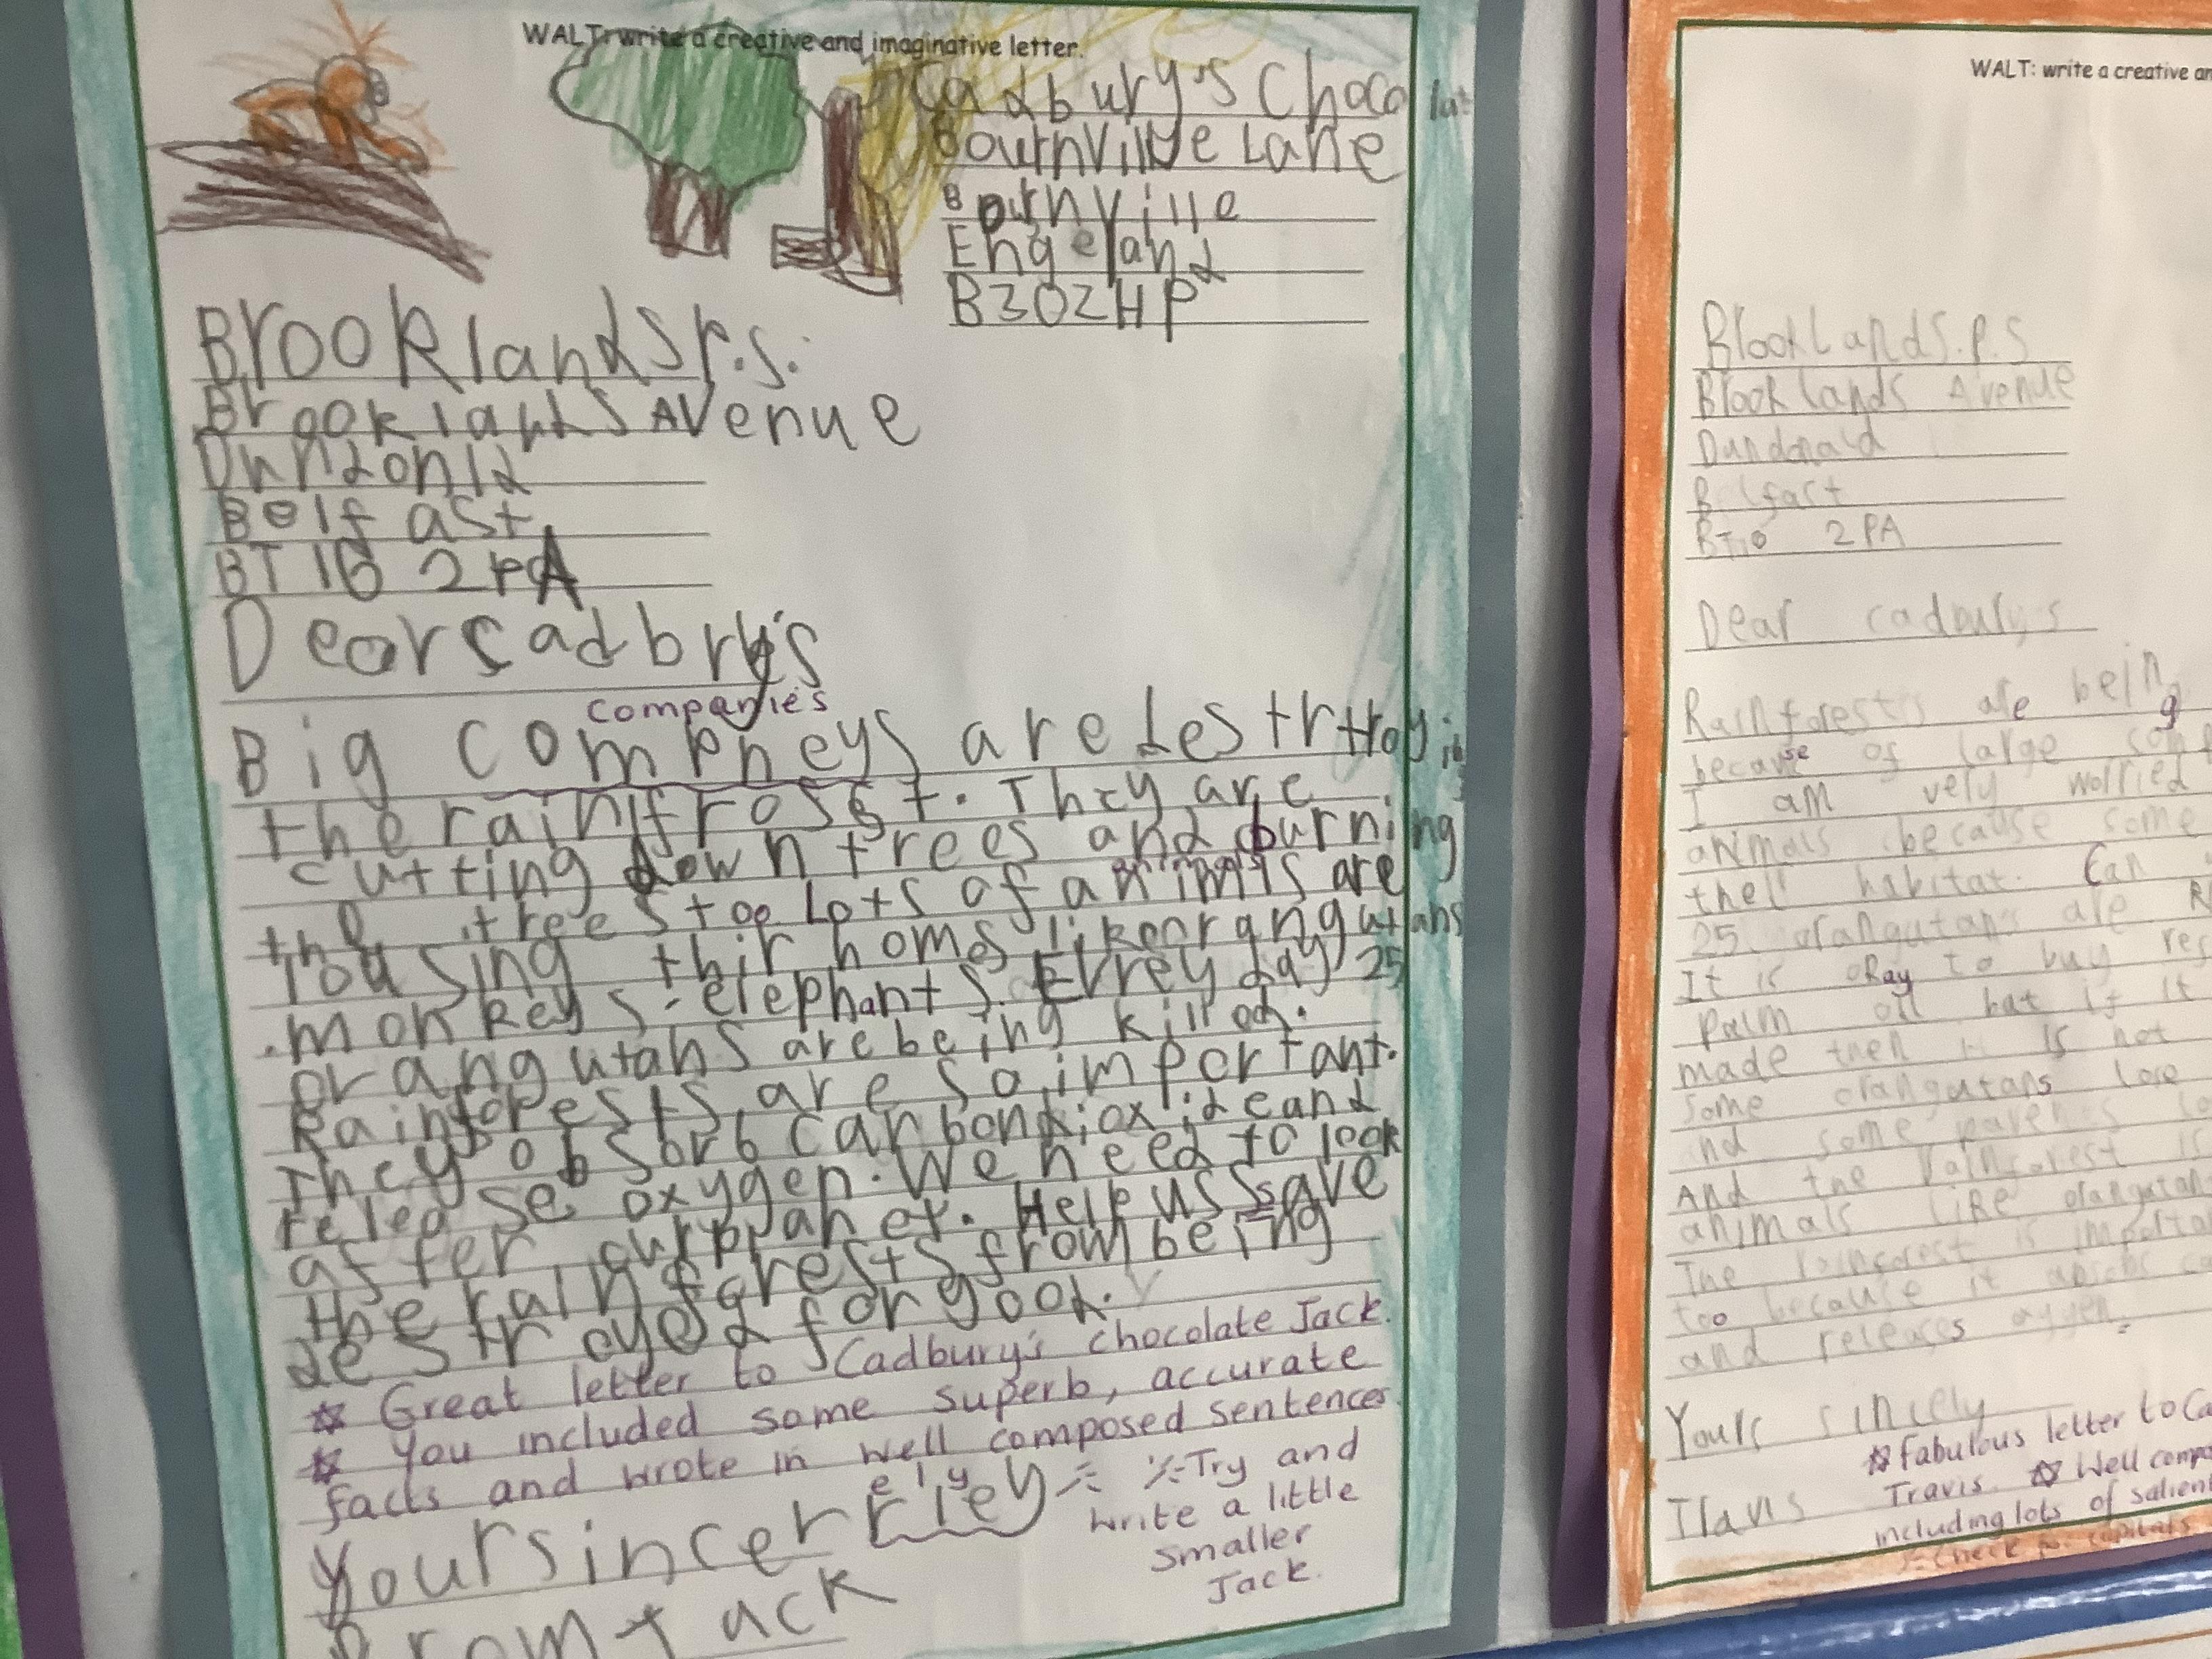 WALT: write a creative and imaginative letter.
Cadbury's Chocolat
Bournville Lane
Bournville
Engeland
B302HP
Brooklands P.S.
Brooklands Avenue
Dundonld
Belfast
BT16 2PA
Dear Cadbry's
Companie's
Big compneys are destrtroying
the rainfrosst. They are
cutting down trees and burning
the trees too Lots of animals are
lousing thir homs like orangutans
monkeys elephants. Evrey day 25
orangutans are being killed.
Rainforests are so important.
They obsorb carbondioxide and
release oxygen. We need to look
after our planet. Help us save
the rainforests from being
destroyed for good.
Great letter to Cadbury's chocolate Jack.
You included some superb, accurate
facts and wrote in well composed sentences
ely
Your sincerrley
Try and
write a little
smaller
Jack.
From Jack
WALT: write a creative an
Brooklands.P.S
Brooklands Avenue
Dundonald
Belfast
2PA
Dear cadburys
Rainforests are being
because of large
I am very worried
animals because some
their habitat. Can
25 orangutans are
It is okay to buy
Palm oil but if it
made then it is not
Some orangutans lose
and some
And the Rainforest is
animals like orangutans
The rainforest is
too because it
and releases oxygen.
Yours sincely
Travis
Fabulous letter to Ca
Travis. Well comp
including lots of salient
Check for capitals